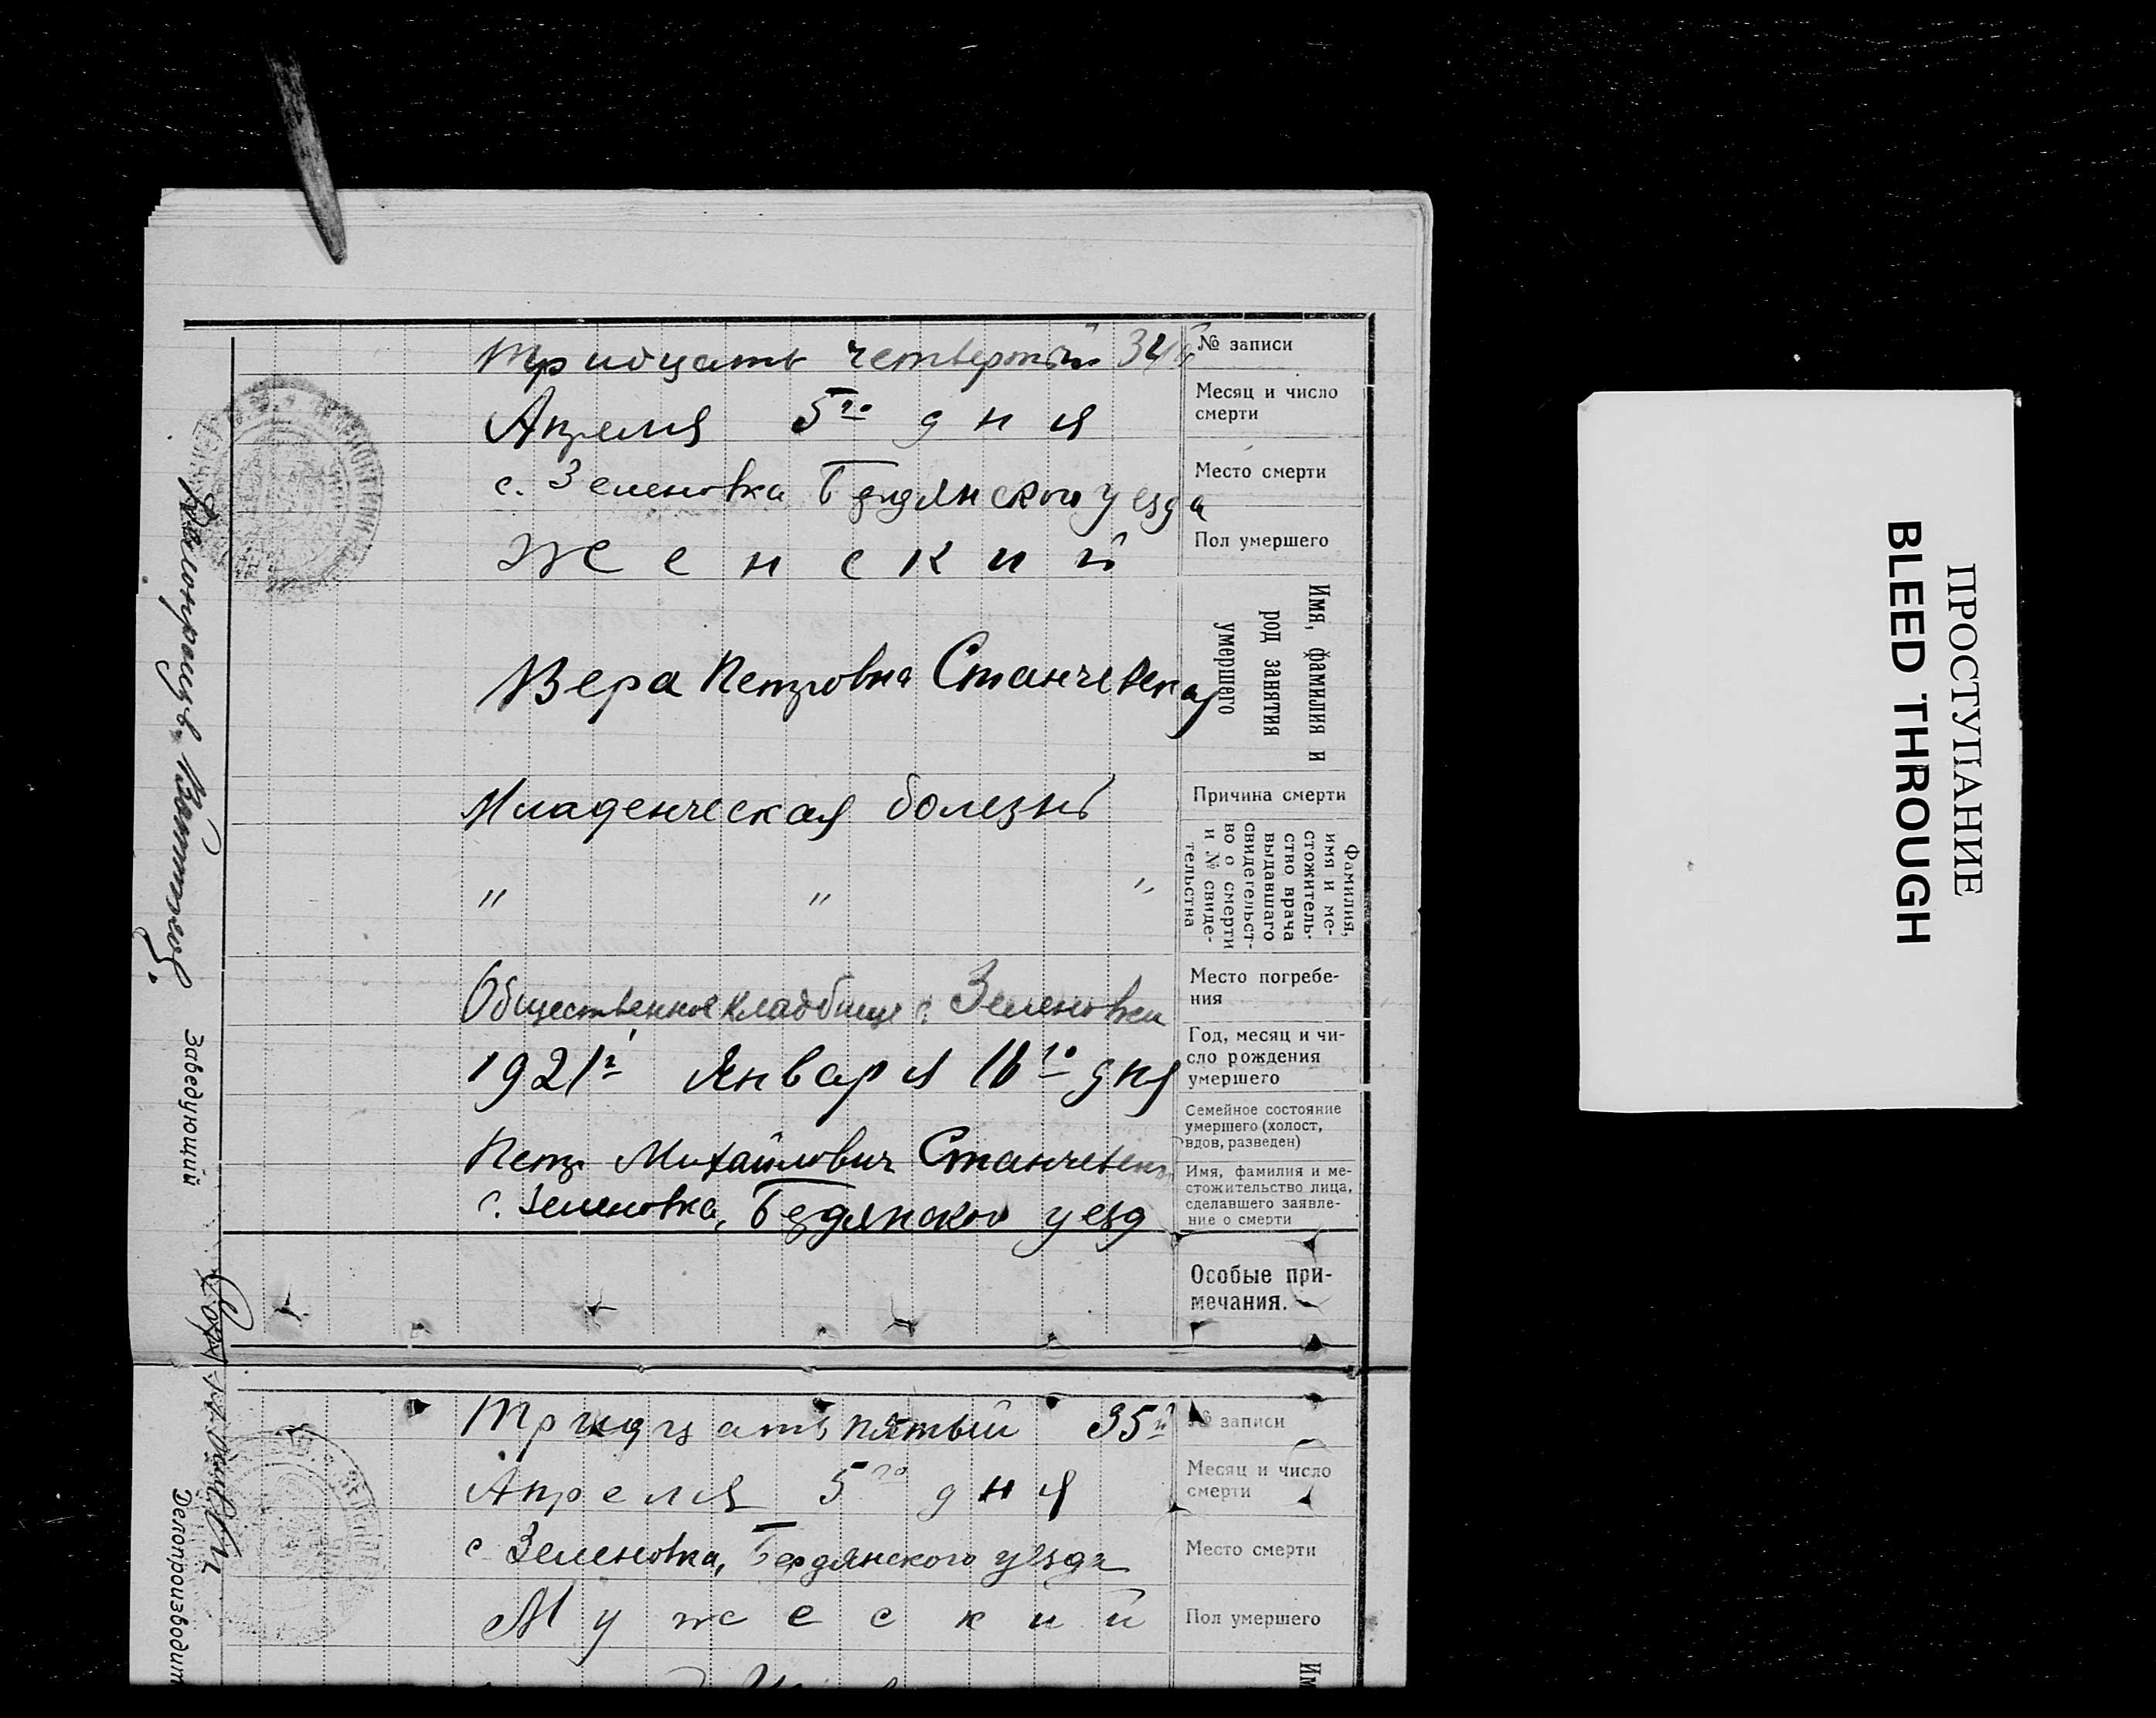 Тридцать четвертый 34й
№ записи
Апреля 5го дня
Месяц и число
смерти
с. Зеленовка Бердянского уезда
Место смерти
Женский
Пол умершего
Вера Петровна Станчевская
Имя, фамилия и
род занятия
умершего
Младенческая болезнь
Причина смерти
" " "
Фамилия,
имя и ме-
стожитель-
ство врача
выдавшаго
свидетельст-
во о смерти
и № свиде-
тельства
Общественное кладбище с. Зеленовки
Место погребе-
ния
1921г Января 16го дня
Год, месяц и чи-
сло рождения
умершего
Семейное состояние
умершего (холост,
вдов, разведен)
Петр Михайлович Станчевск
с. Зеленовка, Бердянского уезд
Имя, фамилия и ме-
стожительство лица,
сделавшего заявле-
ние о смерти
Особые при-
мечания.
Заведующий
Делопроизводит
Тридцать пятый 35й
№ записи
Апреля 5го дня
Месяц и число
смерти
с Зеленовка, Бердянского уезда
Место смерти
Мужеский
Пол умершего
Им
ПРОСТУПАНИЕ
BLEED THROUGH